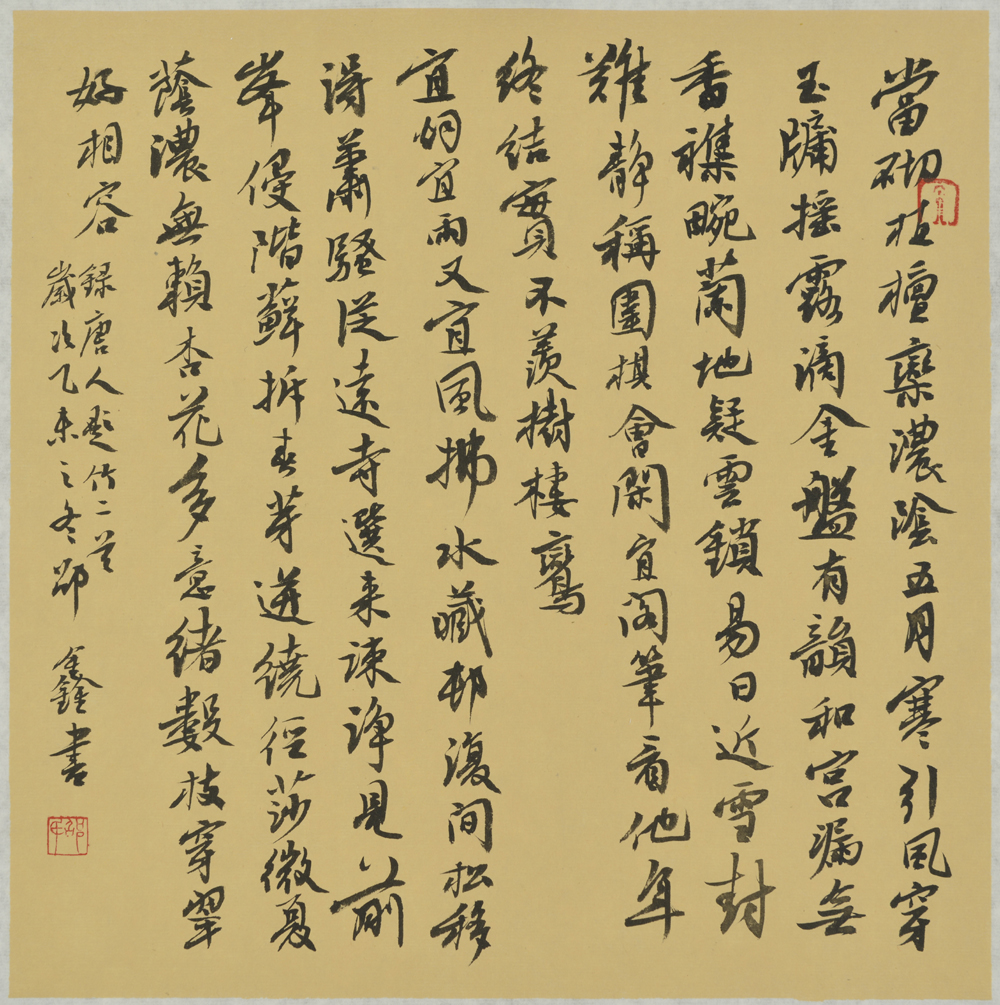 當砌植檀欒濃陰五月寒引風穿
玉牖搖露滴金盤有韻和宮漏無
香襍畹蘭地疑雲鎖易日近雪封
難靜稱圍棋會閑宜閣筆看他年
終結實不羨樹棲鸞
宜烟宜雨又宜風拂水藏邨復間松移
得蕭騷從遠寺選來疎淨見前
峯侵階蘚拆春芽迸繞徑莎微夏
蔭濃無賴杏花多意緒數枝穿翠
好相容
錄唐人題竹二首
歲次乙未之冬邵鑫書